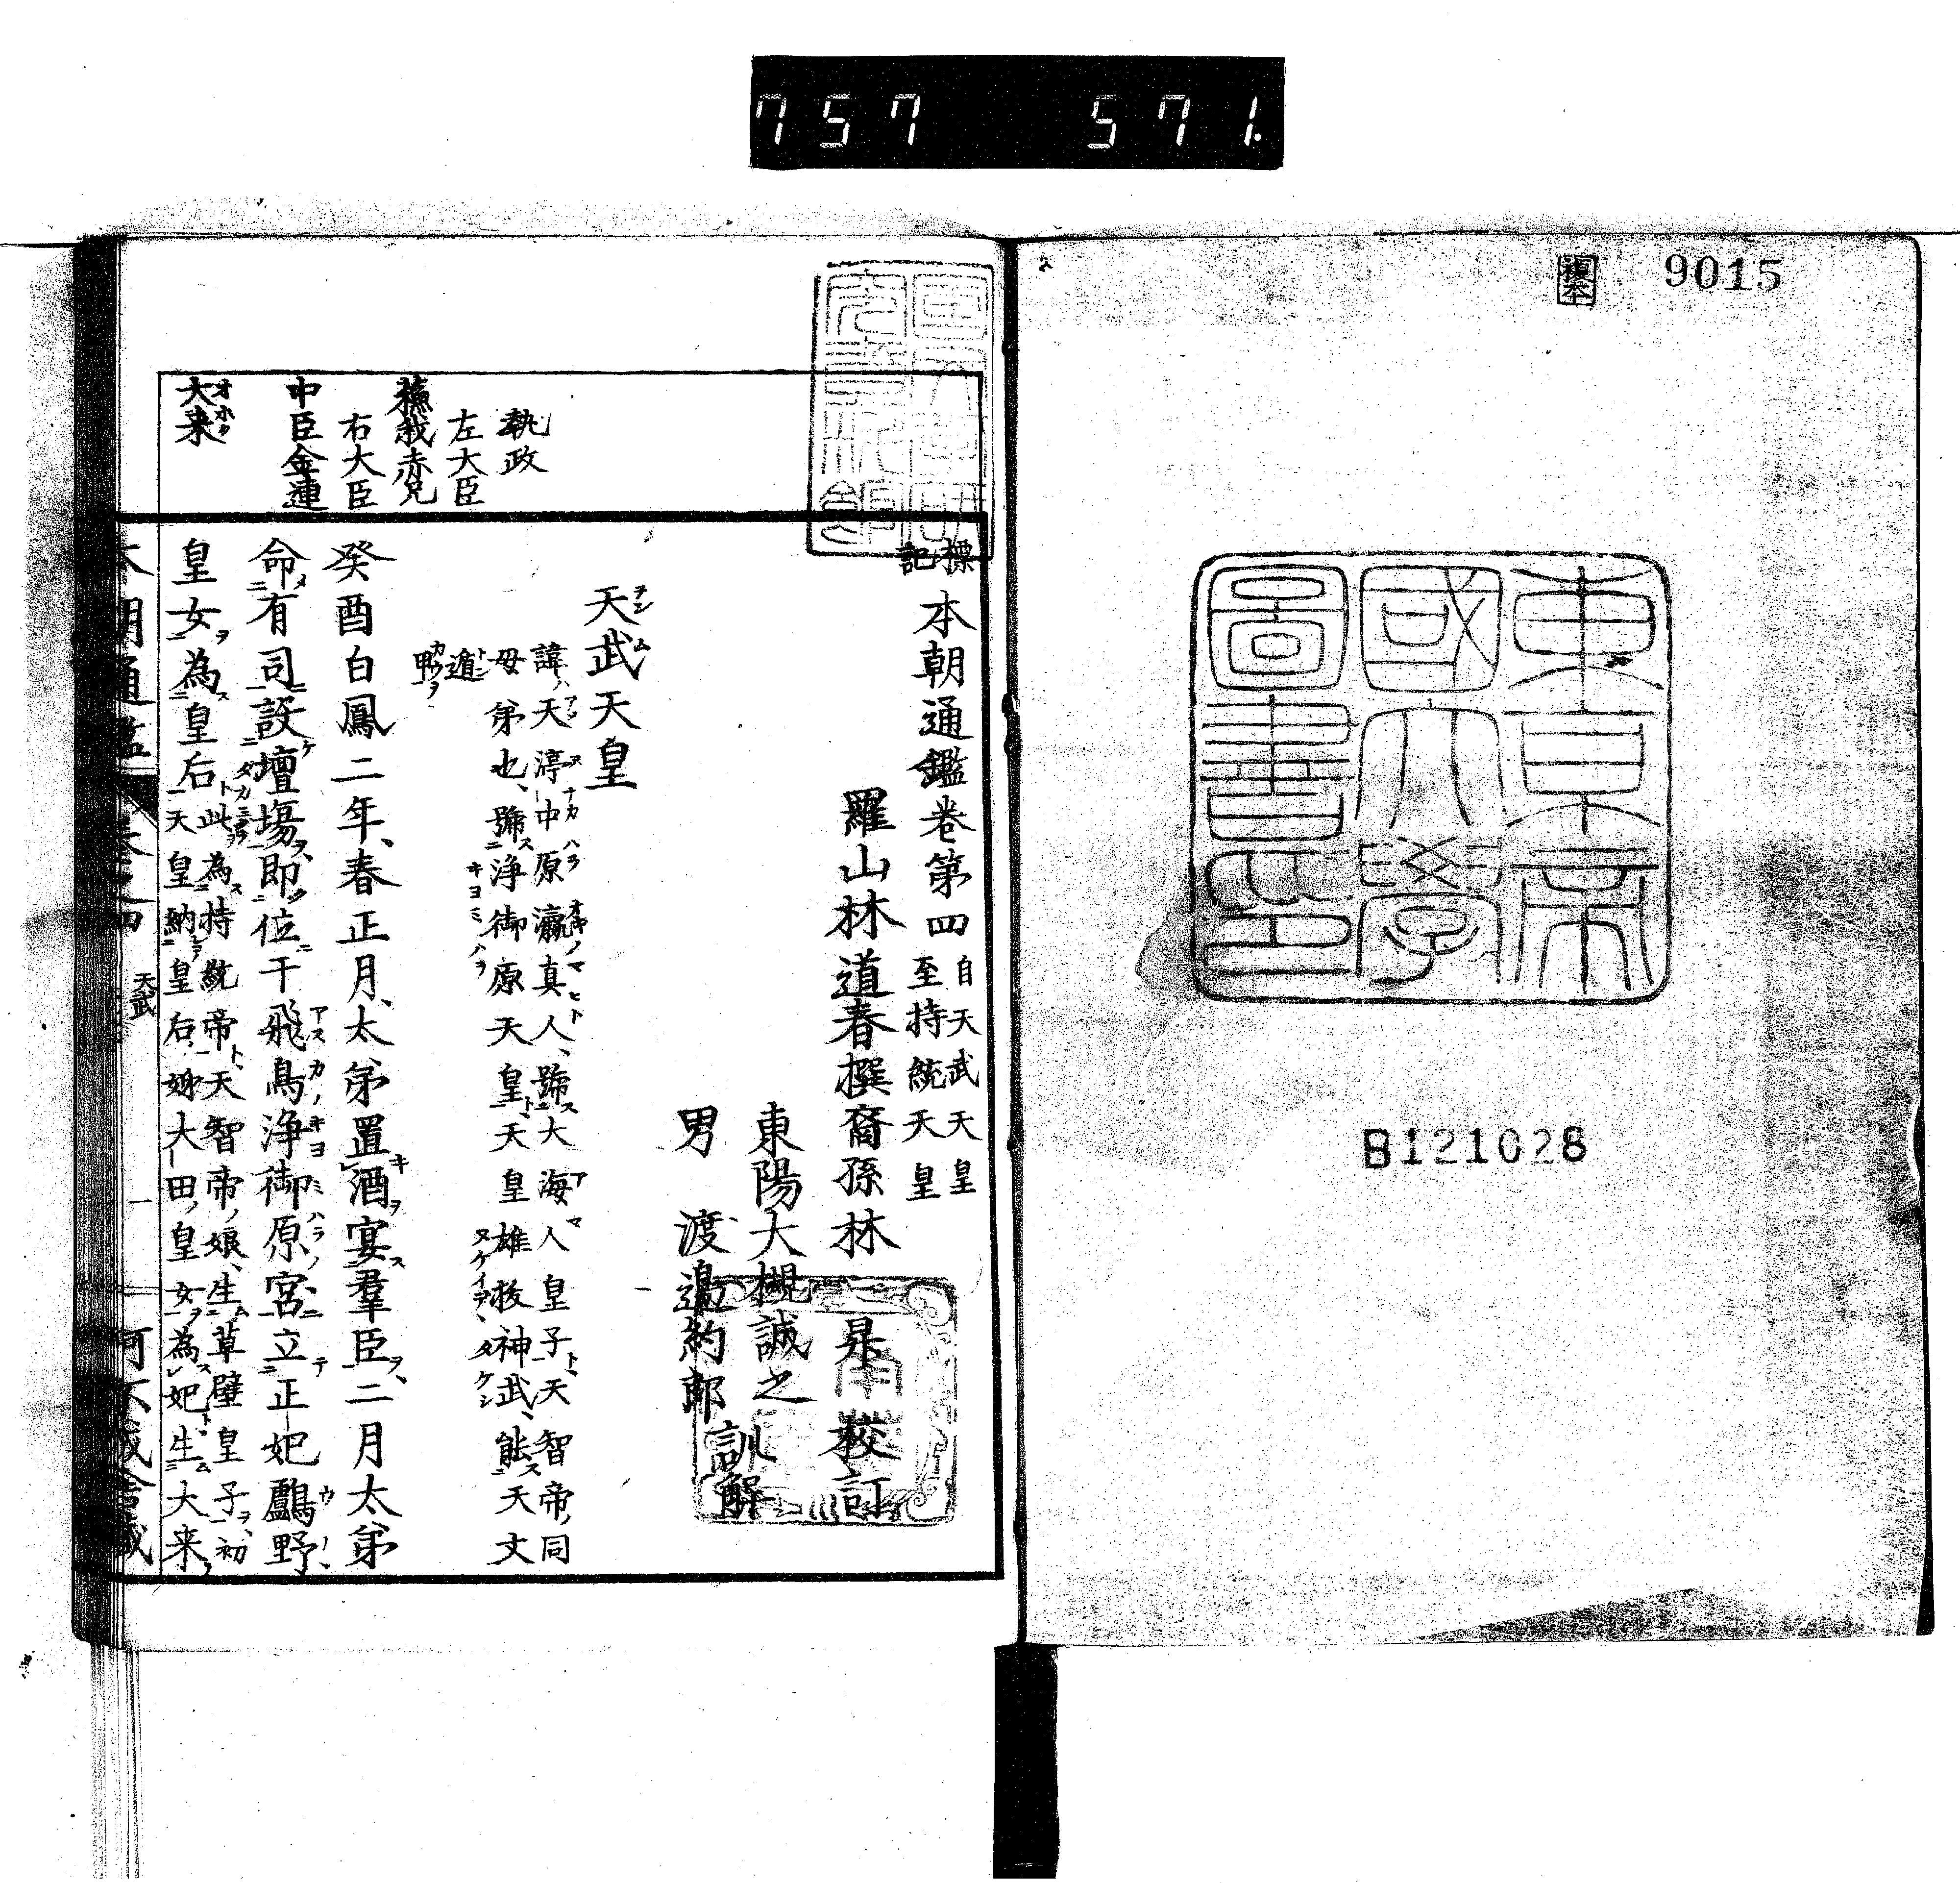 757 571.
複本
9015
東京帝
國大學
圖書印
B121028
標記
本朝通鑑卷第四
自天武天皇
至持統天皇
羅山林道春撰裔孫林 昇 校訂
東陽大槻誠之
訓解
男 渡邉約郎
天武天皇
諱天渟中原瀛真人、號大海人皇子、天智帝同
母弟也、號浄御原天皇、天皇雄拔神武、能天文
遁
甲
執政
左大臣
蘓我赤兄
右大臣
中臣金連
大来
癸酉白鳳二年、春正月、太弟置酒宴羣臣、二月太弟
命有司設壇塲、即位于飛鳥浄御原宮立正妃鸕野
皇女為皇后
此為持統帝、天智帝娘、生草壁皇子、初
天皇納皇后姊大田皇女為妃生大来
天武
一